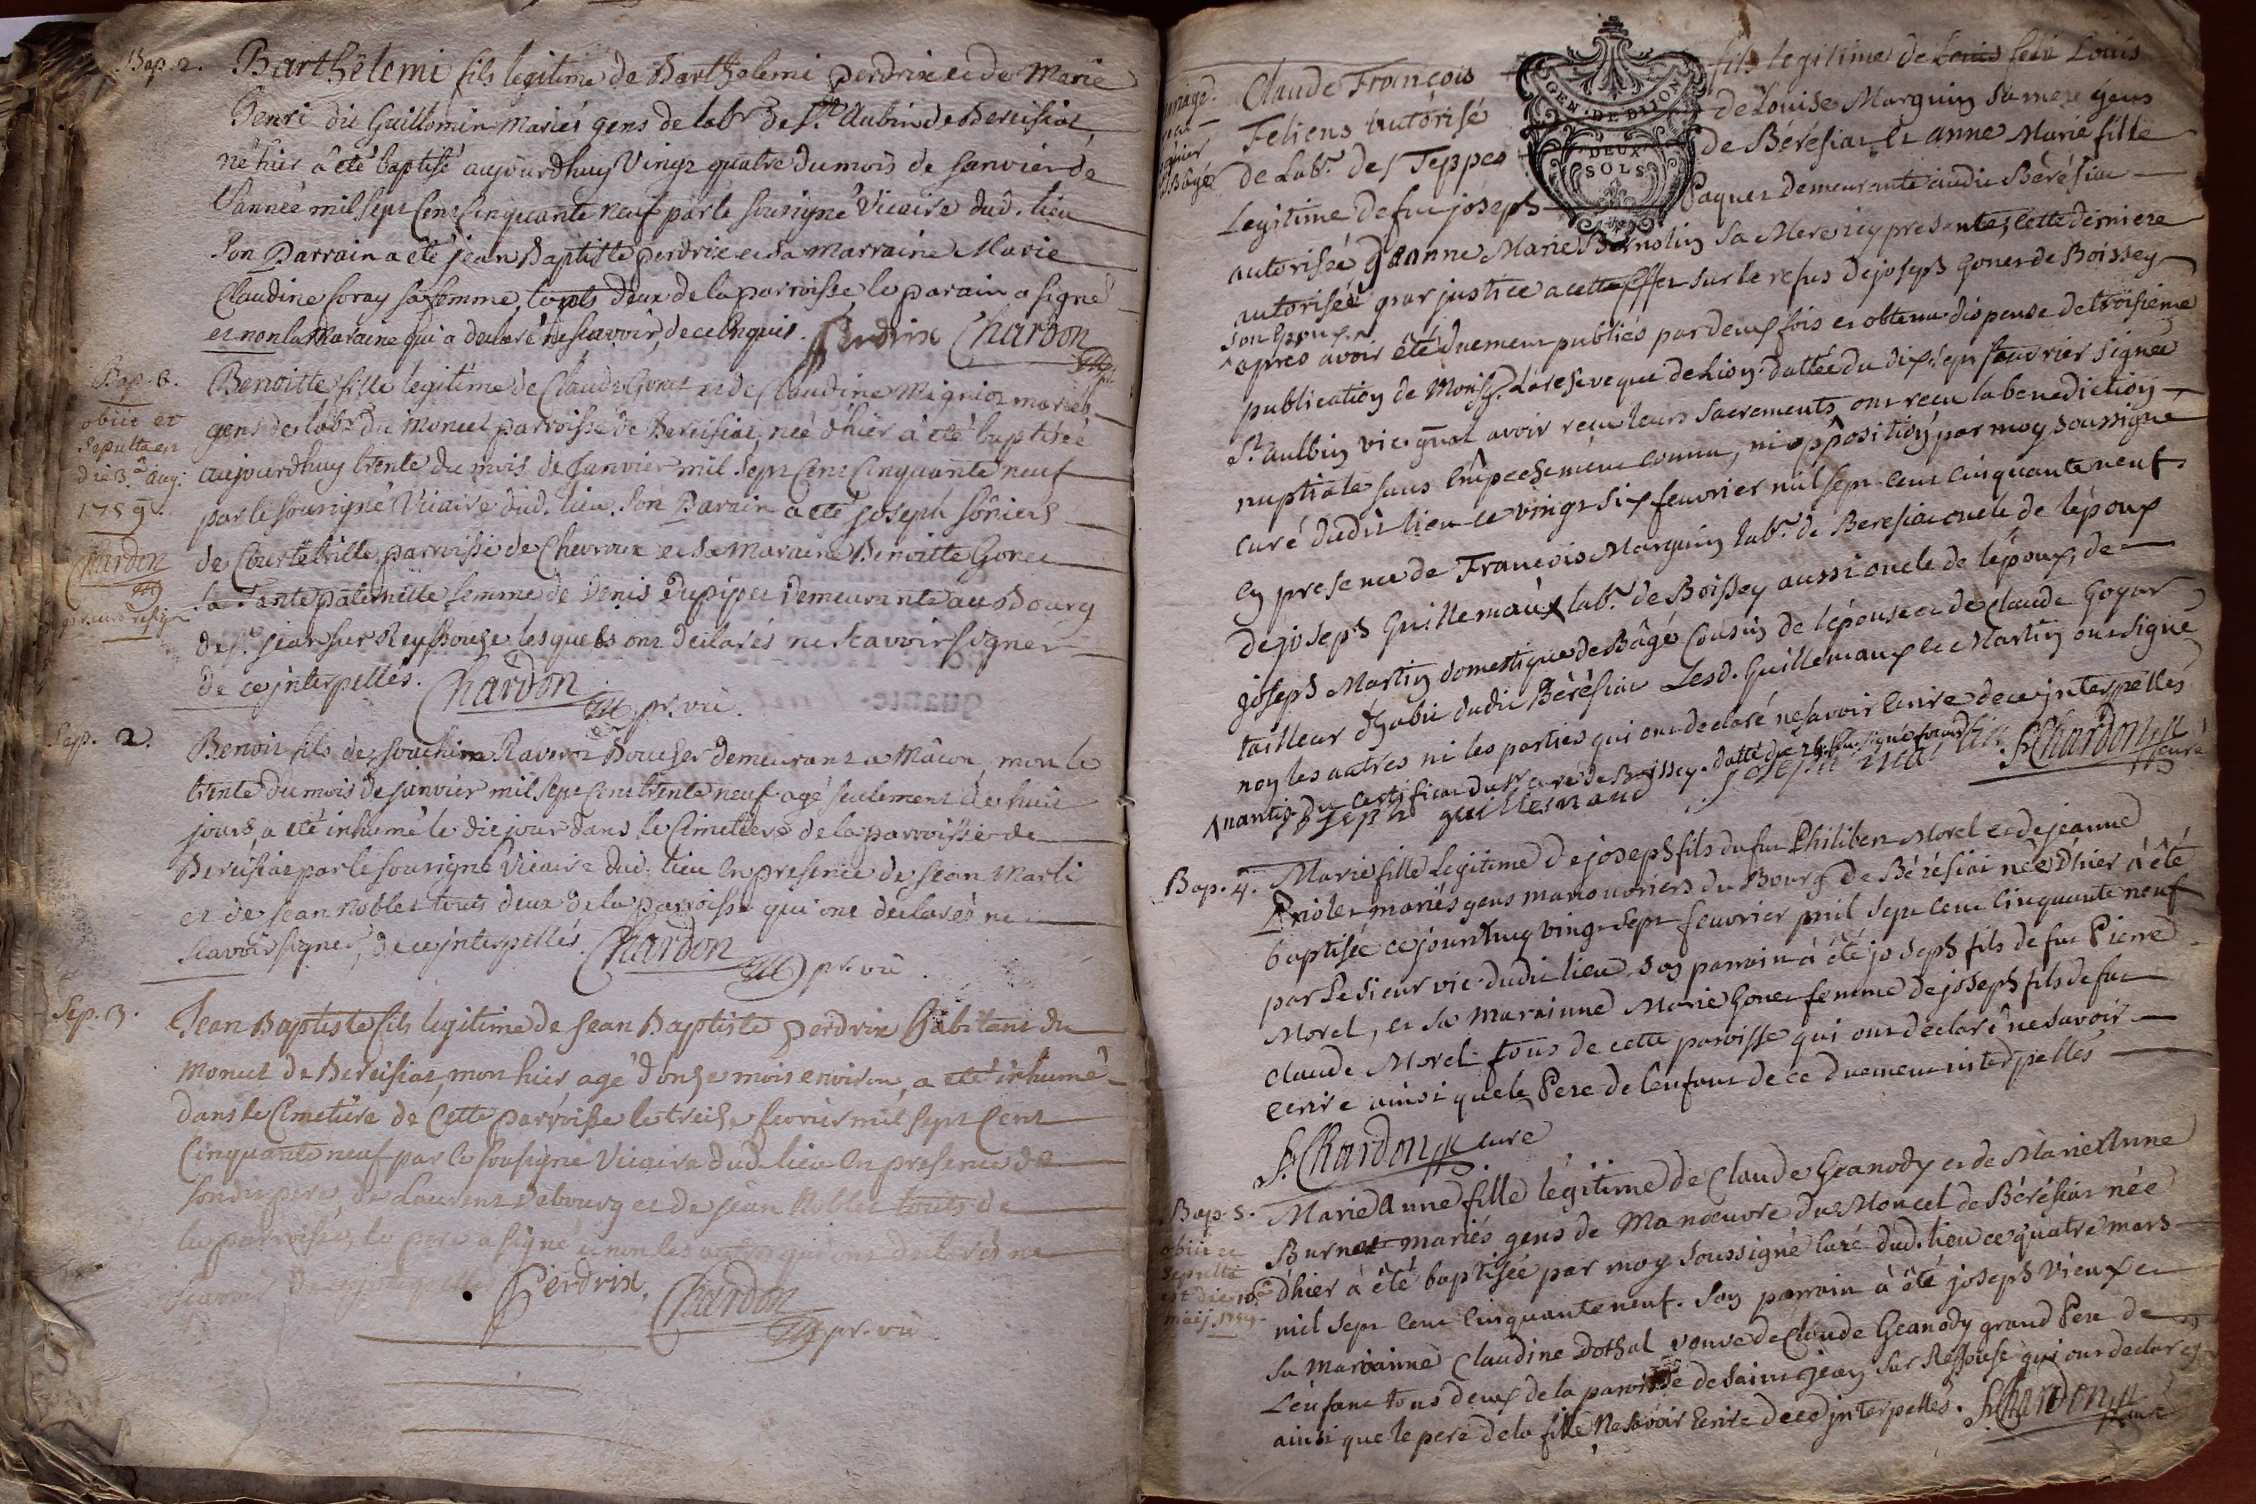 Bap. 2.
Barthélemi fils légitime de Barthelemi perdrix et de Marie
henri dit Guillomin mariés gens de labr. de St. Aubin de Bereisiat,
né hier à été baptisé aujourdhuy Vingt quatre du mois de Janvier de
l'année mil sept Cent Cinquante neuf par le sousigné Vicaire dud. lieu
son Parrain a été jean Baptiste perdrix et sa marraine Marie
Claudine foray sa femme, touts deux de la parroisse le parain a signé
et non la Maraine qui a declaré ne scavoir, de ce enquis. Perdrix Chardon
Bap. 3.
obiit et
Sepulta est
die 3.a aug.
1759.
Chardon
Benoitte fille légitime de Claude Gonet et de Claudine Mignot mariés
gens de labr. du Moncel parroisse de Bereisiat, née d'hier à été baptisée
aujourdhuy trente du mois de Janvier mil Sept Cent Cinquante neuf
par le sousigné Vicaire dud. lieu. Son Parain a été joseph
de Courtebille parroisse de Chevroux et sa Maraine Benoitte Gonet
sa Tante paternelle femme de Denis Dupipet Demeurante au Bourg
de St. jean sur Reyssouze lesquels ont declarés ne scavoir signer
de ce jnterpellés. Chardon pr. vic.
Sep. 2.
Benoit fils de Joachim Ravorot Boucher demeurant a Mâcon, mort le
trente du mois de janvier mil sept Cent trente neuf agé seulement de huit
jours, a été inhumé le dit jour dans le Cimetiere de la parroisse de
Bereisiat par le sousigné Vicaire dud. lieu En presence de jean Marli
et de jean Noblet touts deux de la parroisse qui ont déclarés ne
scavoir signer, de ce jnterpellés. Chardon pr. vic.
Sep. 3.
Jean Baptiste fils légitime de Jean Baptiste perdrix habitant du
Moncet de Bereisiat, mort hier agé d'onze mois environ, a été inhumé
dans le Cimetière de Cette parroisse le treize fevrier mil Sept Cent
Cinquante neuf par le sousigné Vicaire dud. lieu En presence de
son dit pere, de Laurent Debourg et de jean Noblet touts de
la parroisse, le pere a signé et non les autres qui ont declarés ne
scavoir
Perdrix, Chardon pr. vic.
Claude François fils legitime de Louis feu Louis
Feliens autorisé de Louise Marguin sa mere gens
de Labr. des Teppes de Bérésiat et anne Marie fille
Legitime de feu joseph Paquet demeurante audit Bérésiat
autorisée Jeanne Marie Bernolin sa Mere icy presente, cette derniere
autorisée par justice a cette effet sur le refus de joseph Gonet de Boissey
son Epoux
apres avoir été duement publiés par deux fois et obtenu dispense de troisieme
publication de Monsg. L'archeveque de Lion dattée du dix sept feuvrier signée
St. aulbin vic. gnal avoir reçu leurs sacrements, ont reçu la benediction
nuptiale sans empechement connu, ni opposition par moy soussigné
curé dudit lieu ce vingt six feuvrier mil sept cent cinquante neuf.
en presence de François Marguin labr. de Beresiat oncle de l'époux
de joseph Guillemaux labr. de Boissey aussi oncle de l'époux, de
joseph Martin domestique de Bâgé cousin de l'épouse et de Claude Goyar
tailleur d'habit dudit Bérésiat Lesd. Guillemaux et Martin ont signé
non les autres ni les parties qui ont declaré ne savoir Ecrire de ce jnterpellés
nantis du Certificat du Sr. curé de Boissey. datté du
joseph guillemaud joseph Martin F. Chardon curé
Bap. 4.
Marie fille Legitime de joseph fils du feu Philibert Morel et de jeanne
Priolet mariés gens manouvriers du Bourg de Bérésiat née d'hier à été
baptisée ce jourdhuy vingt sept feuvrier mil sept cent cinquante neuf
par le sieur vic. dudit lieu. Son parrain à été joseph fils de feu Pierre
Morel, et sa marainne Marie Gonet femme de joseph fils de feu
Claude Morel tous de cette paroisse qui ont déclaré ne savoir
ecrire ainsi que le Pere de l'enfant de ce duement interpellés
F. Chardon curé
Bap. 5.
obiit et
sepulta
est die 10.a
maij 1759.
Marie Anne fille légitime de Claude Geanody et de Marie Anne
Burnet mariés gens de Manoeuvre du Moncel de Bérésiat née
d'hier à été baptisée par moy soussigné curé dud. lieu ce quatre mars
mil sept cent cinquante neuf. Son parrain à été joseph vieux et
sa marainne Claudine Dothal veuve de Claude Geanody grand Pere de
L'enfant tous deux de la paroisse de saint jean sur Ressouse qui ont declarés
ainsi que le pere de la fille Ne savoir Ecrire de ce jnterpellés. F. Chardon curé
GEN. DE DIJON
DEUX
SOLS